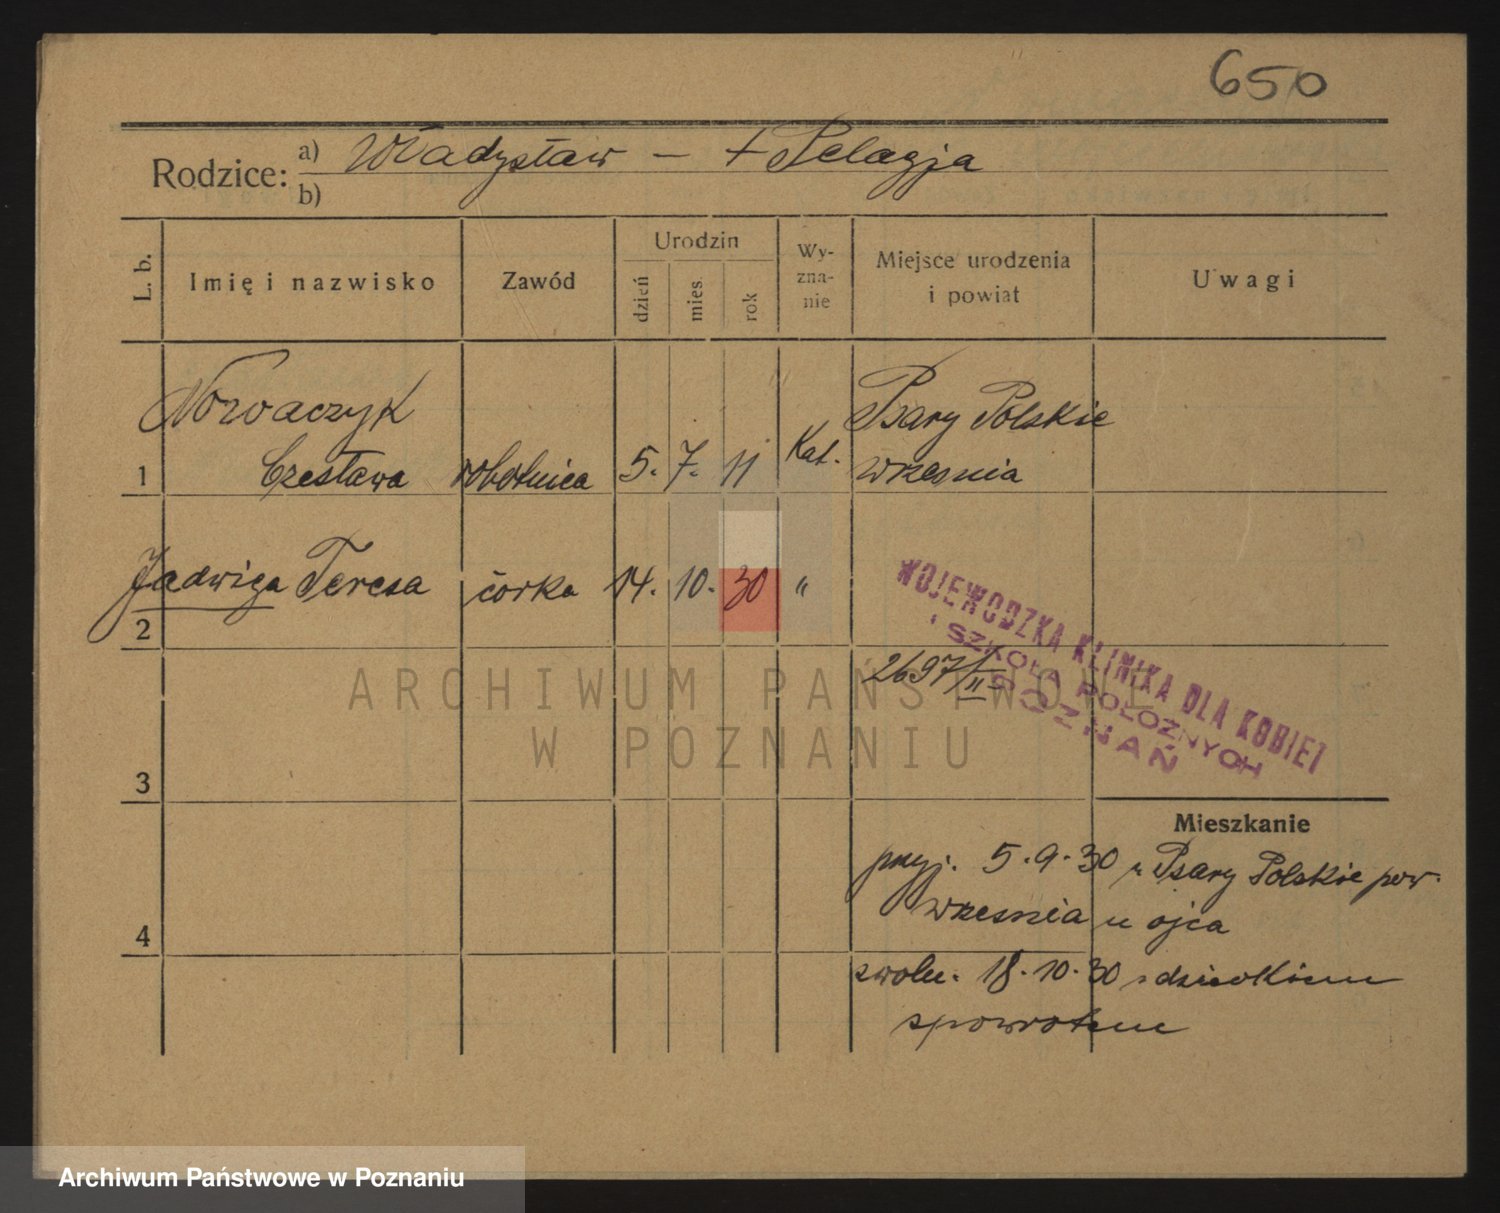 650
Rodzice: a) Władysław – + Pelagja
b)
L. b.
Imię i nazwisko
Zawód
Urodzin
dzień
mies.
rok
Wy-
zna-
nie
Miejsce urodzenia
i powiat
Uwagi
Nowaczyk
Psary Polskie
1 Czesława robotnica 5. 7. 11 Kat. Września
Jadwiga Teresa córka 14. 10. 30 "
2
WOJEWÓDZKA KLINIKA DLA KOBIET
I SZKOŁA POŁOŻNYCH
POZNAŃ
2697/II
ARCHIWUM PAŃSTWOWE
W POZNANIU
3
Mieszkanie
przyj. 5.9.30 z Psary Polskie pow.
Września u ojca
4
zwoln. 18.10.30 z dzieckiem
spowrotem
Archiwum Państwowe w Poznaniu